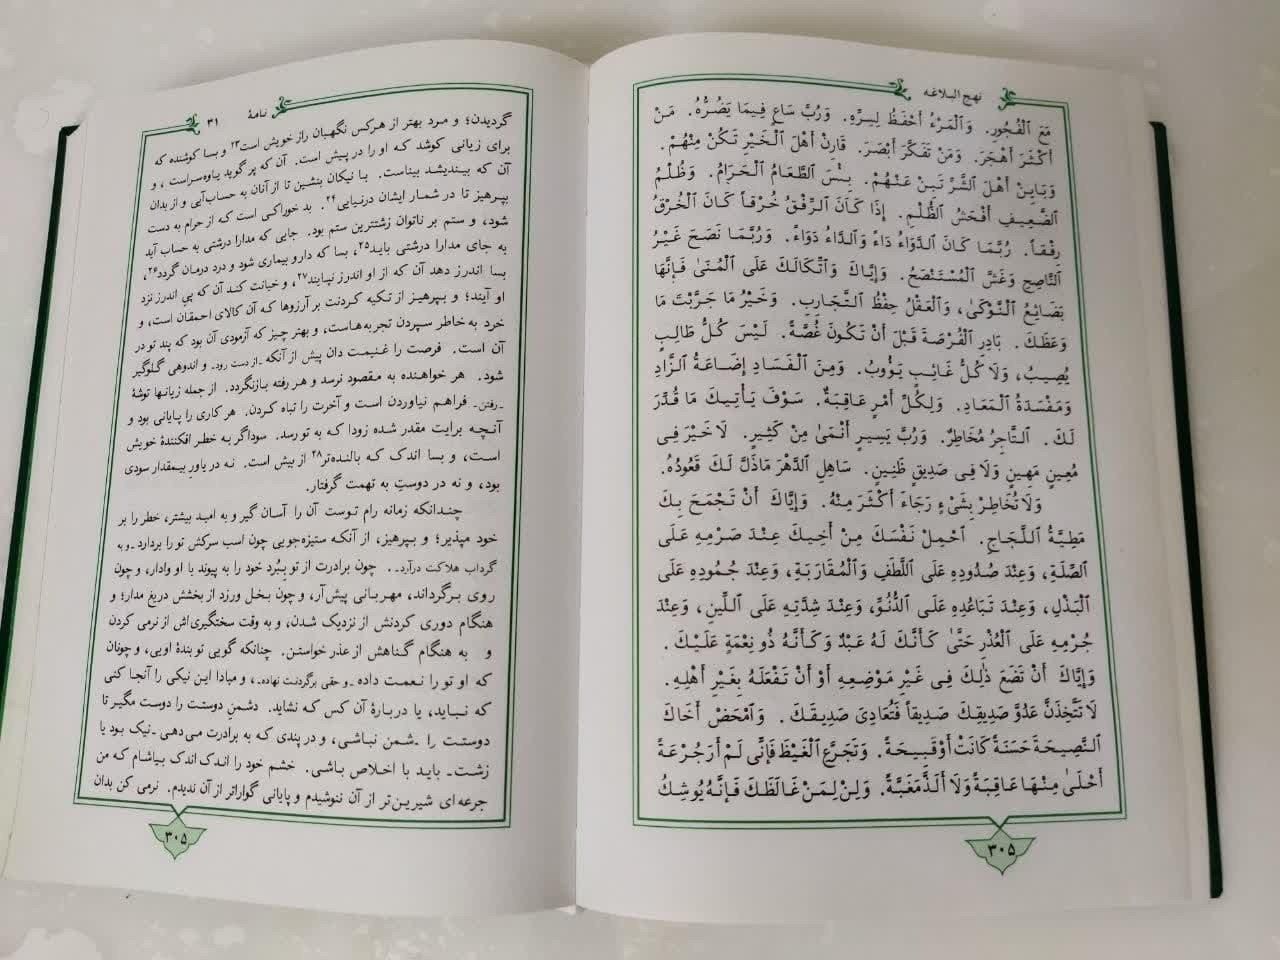 نهج البلاغه
مَعَ ٱلْفُجُورِ. وَٱلْمَرْءُ أَحْفَظُ لِسِرِّهِ. وَرُبَّ سَاعٍ فِيمَا يَضُرُّهُ. مَنْ
أَكْثَرَ أَهْجَرَ. وَمَنْ تَفَكَّرَ أَبْصَرَ. قَارِنْ أَهْلَ ٱلْخَيْرِ تَكُنْ مِنْهُمْ.
وَبَايِنْ أَهْلَ ٱلشَّرِّ تَبِنْ عَنْهُمْ. بِئْسَ ٱلطَّعَامُ ٱلْحَرَامُ. وَظُلْمُ
ٱلضَّعِيفِ أَفْحَشُ ٱلظُّلْمِ. إِذَا كَانَ ٱلرِّفْقُ خُرْقاً كَانَ ٱلْخُرْقُ
رِفْقاً. رُبَّمَا كَانَ ٱلدَّوَاءُ دَاءً وَٱلدَّاءُ دَوَاءً. وَرُبَّمَا نَصَحَ غَيْرُ
ٱلنَّاصِحِ وَغَشَّ ٱلْمُسْتَنْصَحُ. وَإِيَّاكَ وَٱتِّكَالَكَ عَلَى ٱلْمُنَىٰ فَإِنَّهَا
بَضَائِعُ ٱلنَّوْكَىٰ، وَٱلْعَقْلُ حِفْظُ ٱلتَّجَارِبِ. وَخَيْرُ مَا جَرَّبْتَ مَا
وَعَظَكَ. بَادِرِ ٱلْفُرْصَةَ قَبْلَ أَنْ تَكُونَ غُصَّةً. لَيْسَ كُلُّ طَالِبٍ
يُصِيبُ، وَلَا كُلُّ غَائِبٍ يَؤُوبُ. وَمِنَ ٱلْفَسَادِ إِضَاعَةُ ٱلزَّادِ
وَمَفْسَدَةُ ٱلْمَعَادِ. وَلِكُلِّ أَمْرٍ عَاقِبَةٌ. سَوْفَ يَأْتِيكَ مَا قُدِّرَ
لَكَ. ٱلتَّاجِرُ مُخَاطِرٌ. وَرُبَّ يَسِيرٍ أَنْمَىٰ مِنْ كَثِيرٍ. لَا خَيْرَ فِى
مُعِينٍ مَهِينٍ وَلَا فِى صَدِيقٍ ظَنِينٍ. سَاهِلِ ٱلدَّهْرَ مَاذَلَّ لَكَ قَعُودُهُ.
وَلَا تُخَاطِرْ بِشَىْءٍ رَجَاءَ أَكْثَرَ مِنْهُ. وَإِيَّاكَ أَنْ تَجْمَحَ بِكَ
مَطِيَّةُ ٱللَّجَاجِ. ٱحْمِلْ نَفْسَكَ مِنْ أَخِيكَ عِنْدَ صَرْمِهِ عَلَى
ٱلصِّلَةِ، وَعِنْدَ صُدُودِهِ عَلَى ٱللَّطَفِ وَٱلْمُقَارَبَةِ، وَعِنْدَ جُمُودِهِ عَلَى
ٱلْبَذْلِ، وَعِنْدَ تَبَاعُدِهِ عَلَى ٱلدُّنُوِّ، وَعِنْدَ شِدَّتِهِ عَلَى ٱللِّينِ، وَعِنْدَ
جُرْمِهِ عَلَى ٱلْعُذْرِ حَتَّىٰ كَأَنَّكَ لَهُ عَبْدٌ وَكَأَنَّهُ ذُو نِعْمَةٍ عَلَيْكَ.
وَإِيَّاكَ أَنْ تَضَعَ ذٰلِكَ فِى غَيْرِ مَوْضِعِهِ أَوْ أَنْ تَفْعَلَهُ بِغَيْرِ أَهْلِهِ.
لَا تَتَّخِذَنَّ عَدُوَّ صَدِيقِكَ صَدِيقاً فَتُعَادِىَ صَدِيقَكَ. وَٱمْحَضْ أَخَاكَ
ٱلنَّصِيحَةَ حَسَنَةً كَانَتْ أَوْ قَبِيحَةً. وَتَجَرَّعِ ٱلْغَيْظَ فَإِنِّى لَمْ أَرَ جُرْعَةً
أَحْلَىٰ مِنْهَا عَاقِبَةً وَلَا أَلَذَّ مَغَبَّةً. وَلِنْ لِمَنْ غَالَظَكَ فَإِنَّهُ يُوشِكُ
۳۰۵
نامهٔ ۳۱
گردیدن؛ و مرد بهتر از هرکس نگهبان راز خویش است۲۳ و بسا کوشنده که
برای زیانی کوشد که او را در پیش است. آن که پر گوید یاوه‌سراست، و
آن که بیندیشد بیناست. با نیکان بنشین تا از آنان به حساب آیی و از بدان
بپرهیز تا در شمار ایشان درنیایی۲۴. بد خوراکی است که از حرام به دست
شود، و ستم بر ناتوان زشتترین ستم بود. جایی که مدارا درشتی به حساب آید
به جای مدارا درشتی باید۲۵، بسا که دارو بیماری شود و درد درمان گردد۲۶،
بسا اندرز دهد آن که از او اندرز نپایند۲۷، و خیانت کند آن که پی اندرز نزد
او آیند؛ و بپرهیز از تکیه کردنت بر آرزوها که آن کالای احمقان است، و
خرد به خاطر سپردن تجربه‌هاست، و بهتر چیز که آزمودی آن بود که پند تو در
آن است. فرصت را غنیمت دان پیش از آنکه ـ از دست رود ـ و اندوهی گلوگیر
شود. هر خواهنده به مقصود نرسد و هر رفته بازنگردد. از جمله زیانها توشهٔ
ـ رفتن ـ فراهم نیاوردن است و آخرت را تباه کردن. هر کاری را پایانی بود و
آنچه برایت مقدر شده زودا که به تو رسد. سوداگر به خطر افکنندهٔ خویش
است، و بسا اندک که بالنده‌تر۲۸ از بیش است. نه در یاور بیمقدار سودی
بود، و نه در دوستِ به تهمت گرفتار.
چندانکه زمانه رام توست آن را آسان گیر و به امید بیشتر، خطر را بر
خود مپذیر؛ و بپرهیز، از آنکه ستیزه‌جویی چون اسب سرکش تو را بردارد ـ و به
گرداب هلاکت درآرد ـ. چون برادرت از تو ببُرد خود را به پیوند با او وادار، و چون
روی برگرداند، مهربانی پیش‌آر، و چون بخل ورزد از بخشش دریغ مدار؛ و
هنگام دوری کردنش از نزدیک شدن، و به وقت سختگیری‌اش از نرمی کردن
و به هنگام گناهش از عذر خواستن. چنانکه گویی تو بندهٔ اویی، و چونان
که او تو را نعمت داده ـ و حقی برگردنت نهاده ـ، و مبادا این نیکی را آنجا کنی
که نباید، یا دربارهٔ آن کس که نشاید. دشمنِ دوستت را دوست مگیر تا
دوستت را دشمن نباشی، و در پندی که به برادرت می‌دهی ـ نیک بود یا
زشت ـ باید با اخلاص باشی. خشم خود را اندک اندک بیاشام که من
جرعه‌ای شیرین‌تر از آن ننوشیدم و پایانی گواراتر از آن ندیدم. نرمی کن بدان
۳۰۵